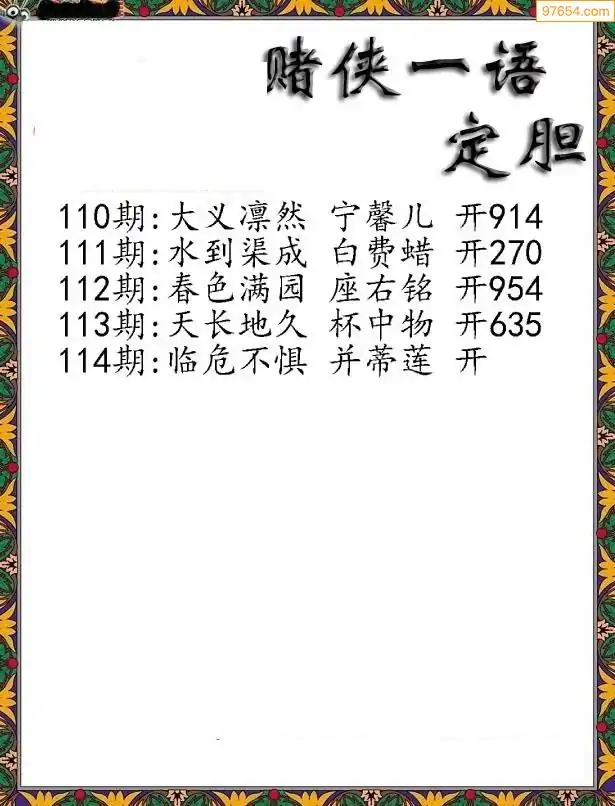 97654.com
赌侠一语
定胆
110期:大义凛然 宁馨儿 开914
111期:水到渠成 白费蜡 开270
112期:春色满园 座右铭 开954
113期:天长地久 杯中物 开635
114期:临危不惧 并蒂莲 开